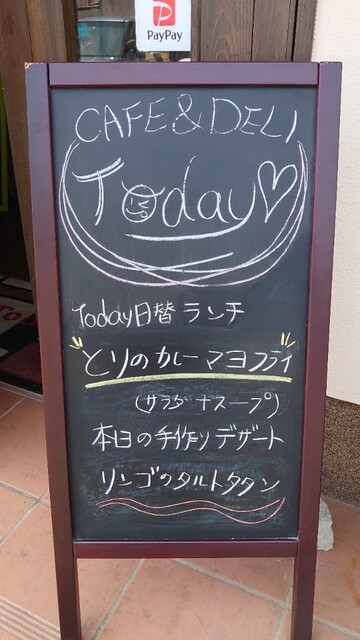 PayPay
CAFE & DELI
Today♡
Today日替ランチ
"とりのカレーマヨフライ"
(サラダ+スープ)
本日の手作りデザート
リンゴのタルトタタン